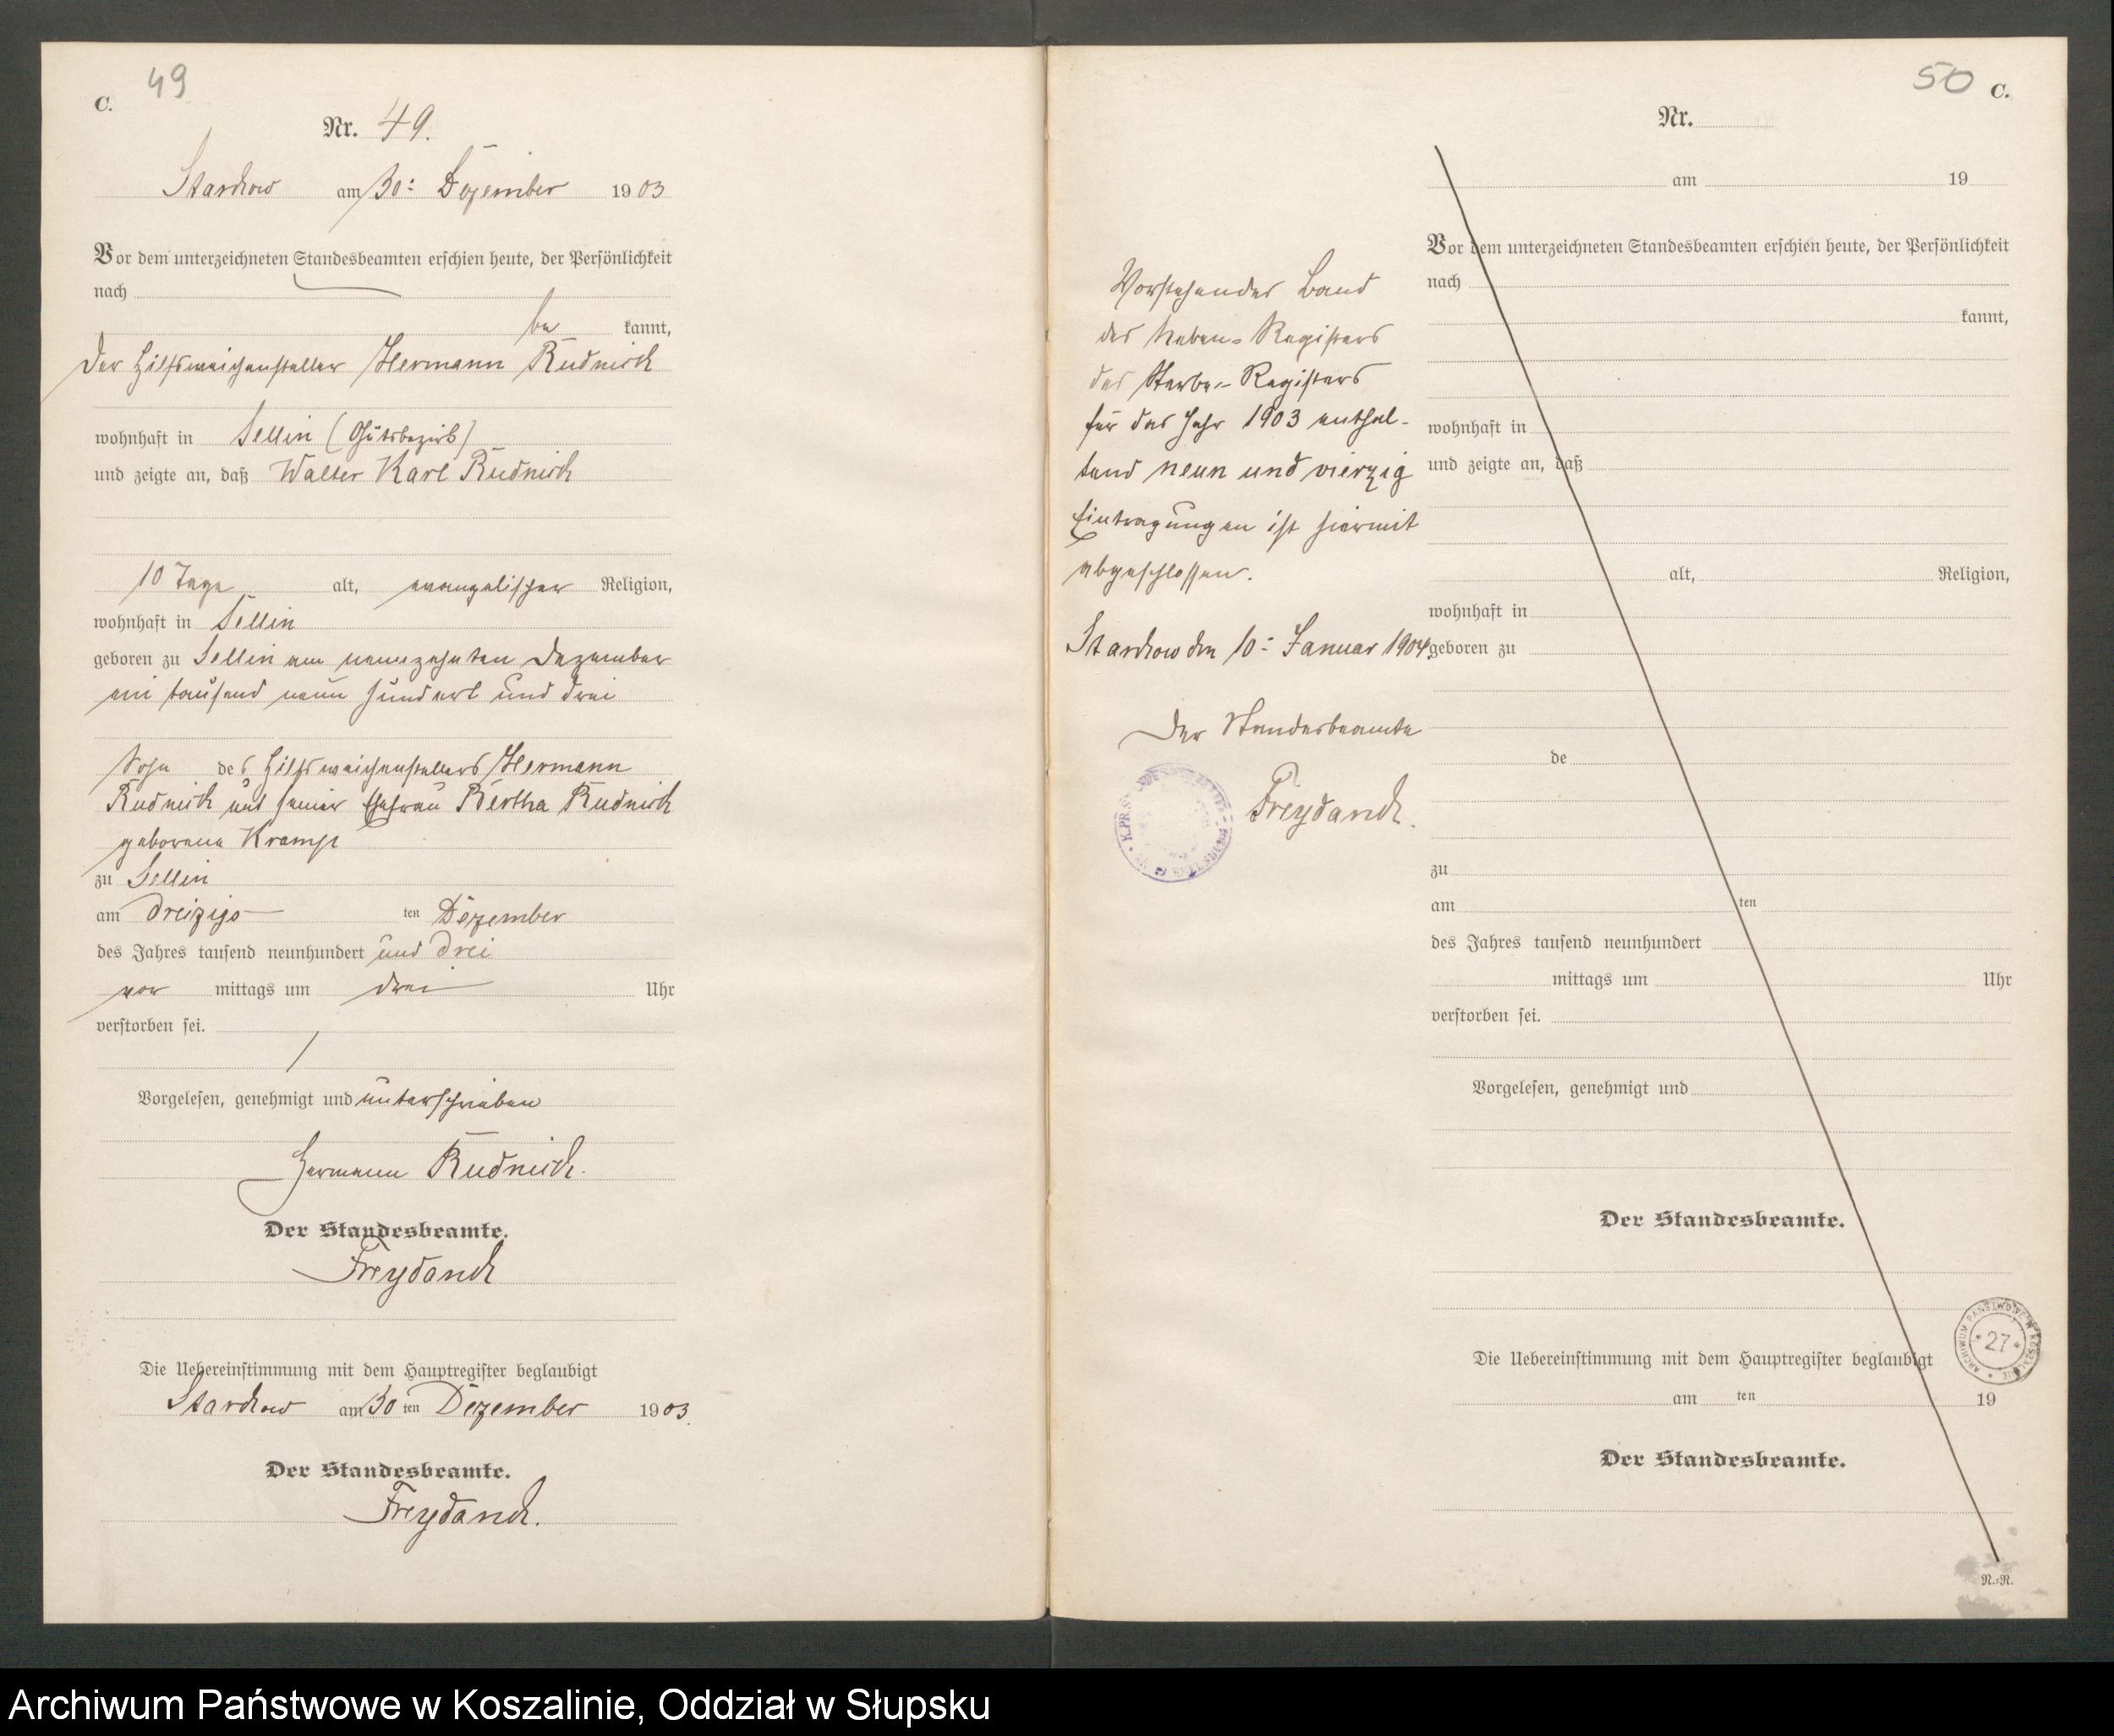 49
C.
Nr. 49.
Starckow am 30ᵗ Dezember 1903
Vor dem unterzeichneten Standesbeamten erschien heute, der Persönlichkeit
nach
be kannt,
der Hilfsweichensteller Hermann Rudnick
wohnhaft in Sellin (Gutsbezirk)
und zeigte an, daß Walter Karl Rudnick
10 Tage alt, evangelischer Religion,
wohnhaft in Sellin
geboren zu Sellin am neunzehnten Dezember
ein tausend neun hundert und drei
Sohn des Hilfsweichenstellers Hermann
Rudnick und seiner Ehefrau Bertha Rudnick
geborene Kramp
zu Sellin
am dreizigs ten Dezember
des Jahres tausend neunhundert und drei
vor mittags um drei Uhr
verstorben sei.
Vorgelesen, genehmigt und unterschrieben
Hermann Rudnick.
Der Standesbeamte.
Freydanck
Die Uebereinstimmung mit dem Hauptregister beglaubigt
Starckow am 30 ten Dezember 1903.
Der Standesbeamte.
Freydanck.
50 C.
Nr.
am 19
Vor dem unterzeichneten Standesbeamten erschien heute, der Persönlichkeit
nach
kannt,
wohnhaft in
und zeigte an, daß
alt, Religion,
wohnhaft in
geboren zu
de
zu
am ten
des Jahres tausend neunhundert
mittags um Uhr
verstorben sei.
Vorgelesen, genehmigt und
Der Standesbeamte.
Die Uebereinstimmung mit dem Hauptregister beglaubigt
am ten 19
Der Standesbeamte.
N.=N.
Vorstehender Band
des Neben-Registers
des Sterbe-Registers
für das Jahr 1903 enthal-
tend neun und vierzig
Eintragungen ist hiermit
abgeschlossen.
Starckow den 10ᵗ Januar 1904
Der Standesbeamte
Freydanck.
ARCHIWUM PAŃSTWOWE W KOSZALINIE
* 27 *
Archiwum Państwowe w Koszalinie, Oddział w Słupsku